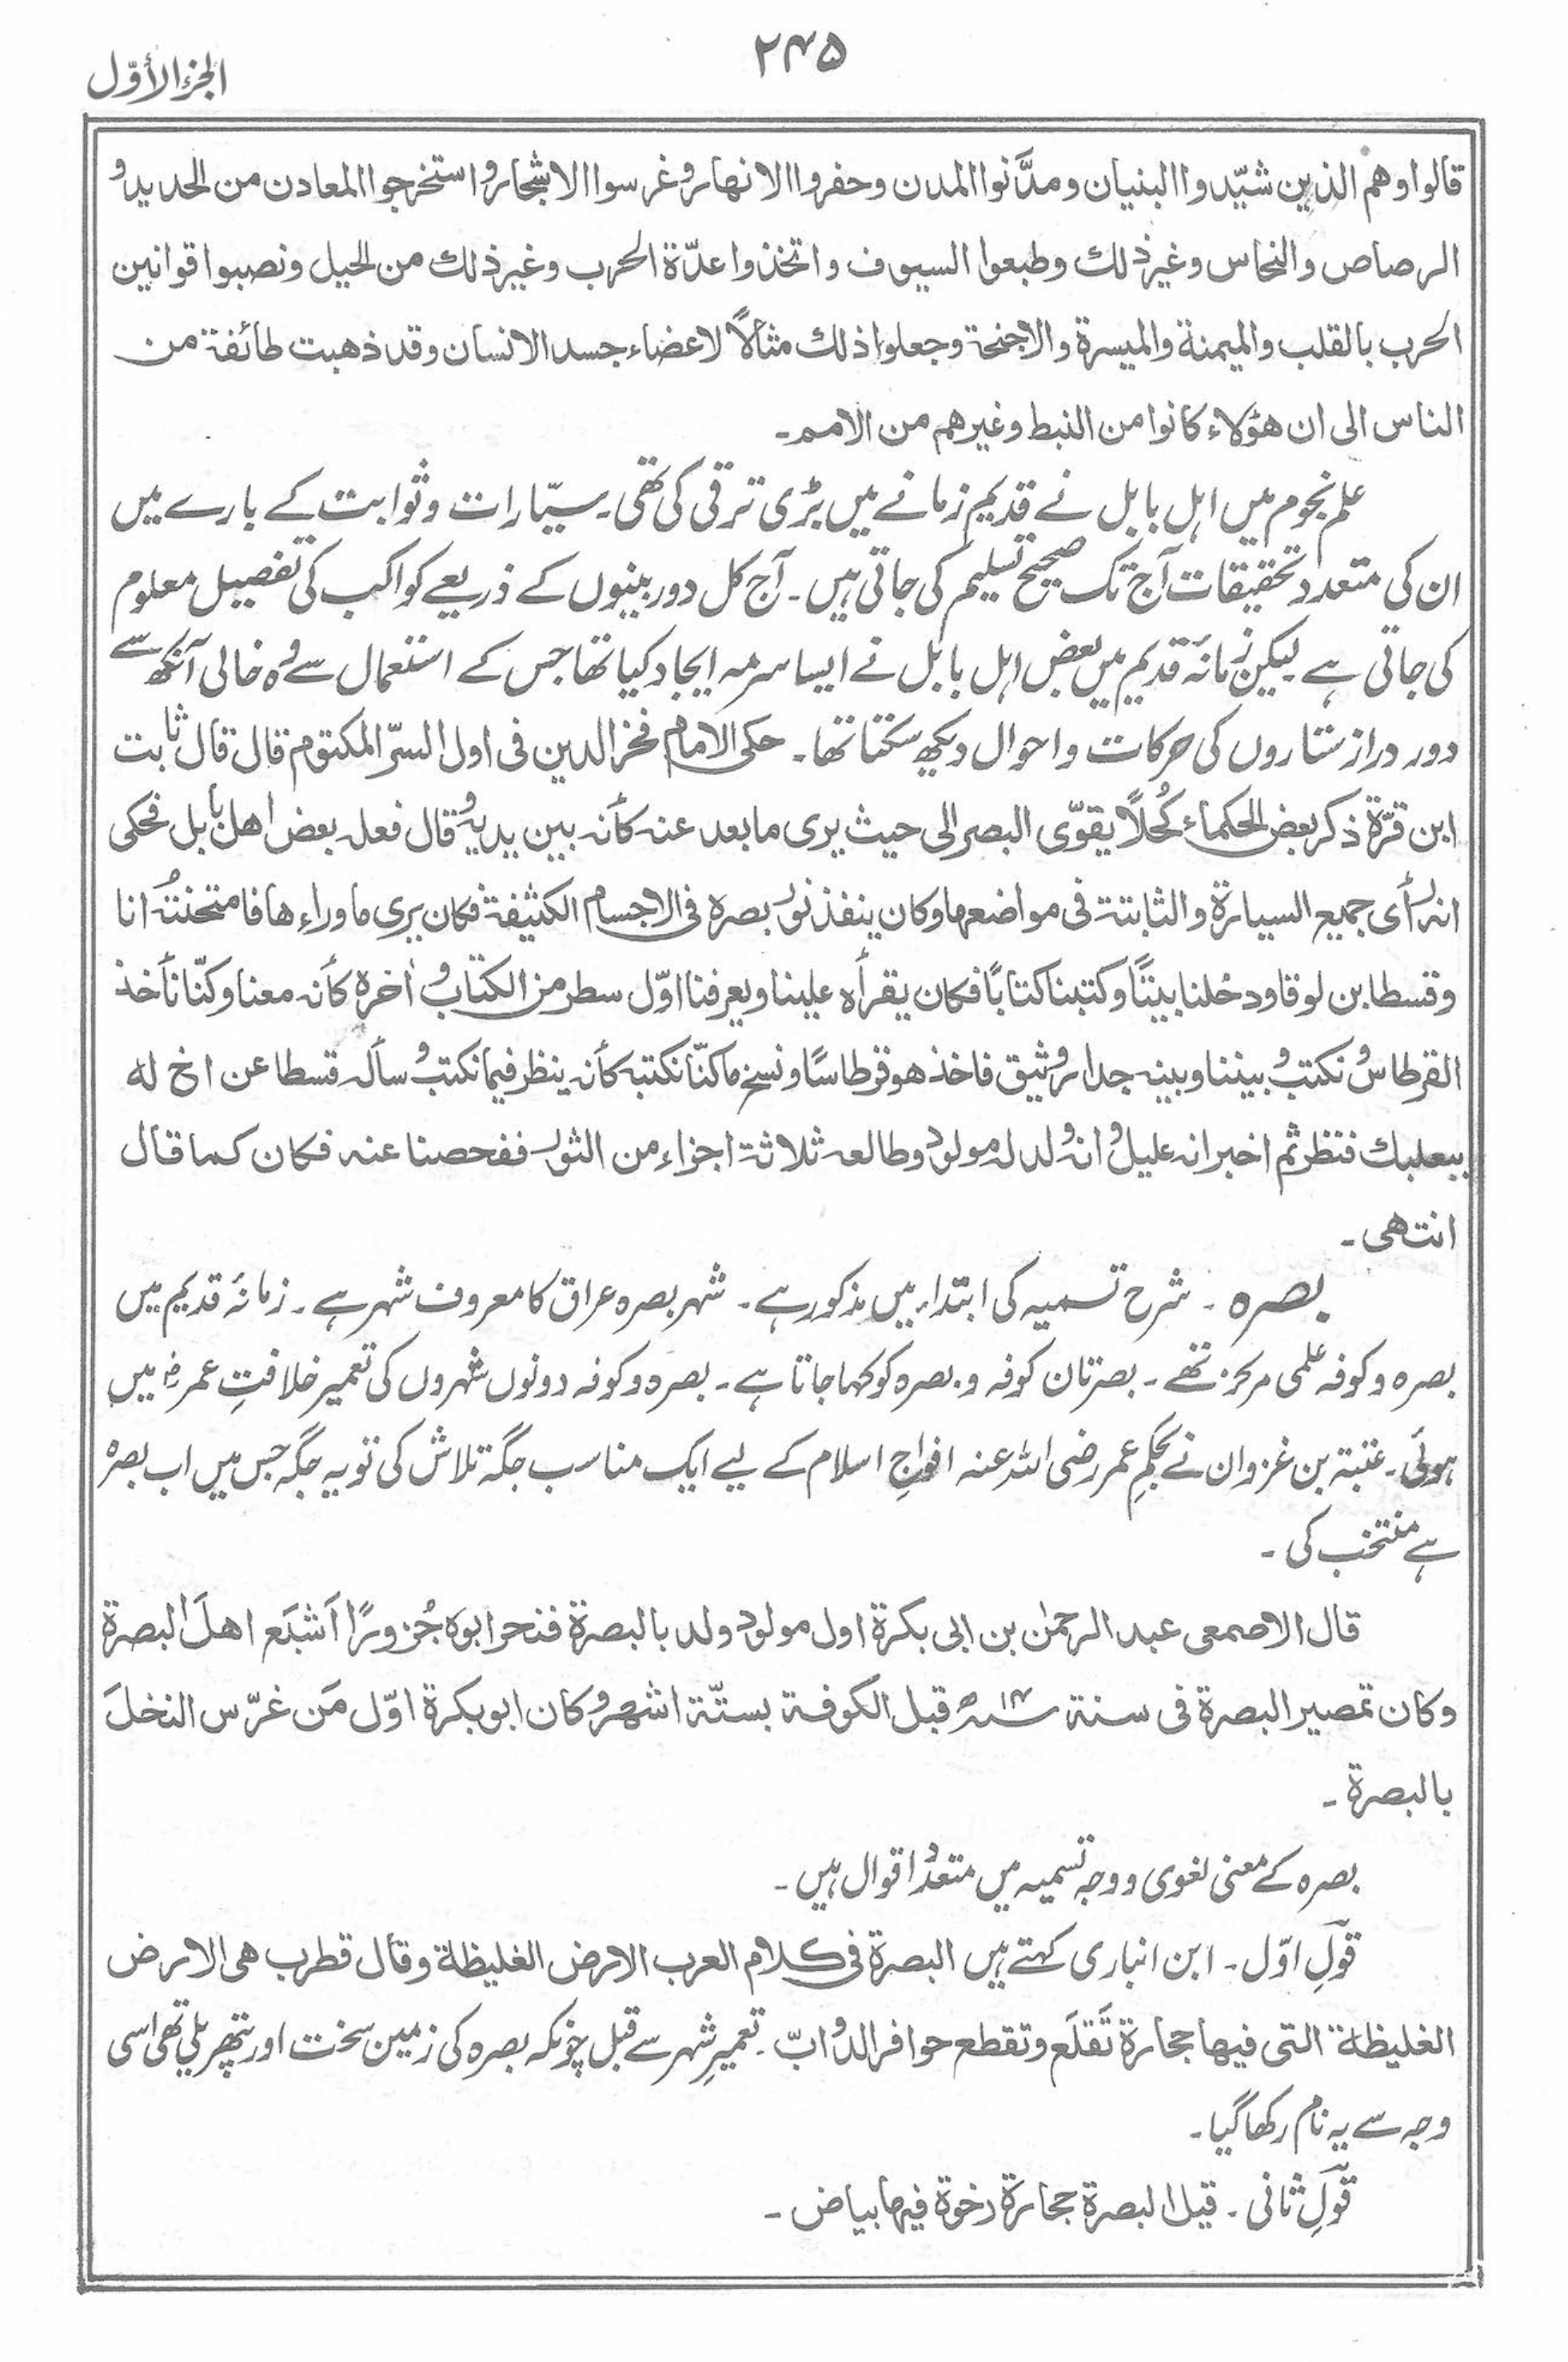 ۲۴۵
الجزء الأوّل
قالوا وهم الذين شيّدوا البنيان ومدّنوا المدن وحفروا الانهار وغرسوا الاشجار واستخرجوا المعادن من الحديد و
الرصاص والنحاس وغير ذلك وطبعوا السيوف واتخذوا عدّة الحرب وغير ذلك من الحيل ونصبوا قوانين
الحرب بالقلب والميمنة والميسرة والاجنحة وجعلوا ذلك مثالًا لاعضاء جسد الانسان وقد ذهبت طائفة من
الناس الى ان هؤلاء كانوا من النبط وغيرهم من الامم۔
علم نجوم میں اہل بابل نے قدیم زمانے میں بڑی ترقی کی تھی۔ سیّارات و ثوابت کے بارے میں
ان کی متعدد تحقیقات آج تک صحیح تسلیم کی جاتی ہیں۔ آج کل دوربینوں کے ذریعے کواکب کی تفصیل معلوم
کی جاتی ہے لیکن زمانۂ قدیم میں بعض اہل بابل نے ایسا سرمہ ایجاد کیا تھا جس کے استعمال سے وُہ خالی آنکھ سے
دور دراز ستاروں کی حرکات و احوال دیکھ سکتا تھا۔ حكى الامام فخر الدين فى اول السرّ المكتوم قال قال ثابت
ابن قرّة ذكر بعض الحكماء كُحلًا يقوّى البصر الى حيث يرى ما بعد عنه كأنه بين يديه وقال فعله بعض اهل بابل فحكى
انه رأى جميع السيارة والثابتة فى مواضعها وكان ينفذ نور بصره فى الاجسام الكثيفة فكان يرى ما وراءها فامتحنتُه انا
وقسطا بن لوقا ودخلنا بيتًا وكتبنا كتابًا فكان يقرأه علينا ويعرفنا اوّل سطر من الكتاب واٰخره كأنه معنا وكنّا نأخذ
القرطاس ونكتب وبيننا وبينه جدار وثيق فاخذ هو قرطاسًا ونسخ ما كنّا نكتبه كأنه ينظر فيما نكتب وسأله قسطا عن اخ له
ببعلبك فنظر ثم اخبر انه عليل وانه ولد له مولود وطالعه ثلاثة اجزاء من الثور ففحصنا عنه فكان كما قال
انتهى۔
بصرہ ۔ شرح تسمیہ کی ابتداء میں مذکور ہے۔ شہر بصرہ عراق کا معروف شہر ہے۔ زمانۂ قدیم میں
بصرہ و کوفہ علمی مرکز تھے۔ بصرتان کوفہ و بصرہ کو کہا جاتا ہے۔ بصرہ و کوفہ دونوں شہروں کی تعمیر خلافتِ عمرؓ میں
ہوئی۔ عتبۃ بن غزوان نے بحکمِ عمر رضی اللہ عنہ افواجِ اسلام کے لیے ایک مناسب جگہ تلاش کی تو یہ جگہ جس میں اب بصرہ
ہے منتخب کی۔
قال الاصمعى عبد الرحمٰن بن ابى بكرة اول مولود ولد بالبصرة فنحر ابوه جُزورًا اَشبَع اهلَ البصرة
وكان تمصير البصرة فى سنة ۱۴ھ قبل الكوفة بستّة اشهر وكان ابو بكرة اوّل مَن غرّس النخلَ
بالبصرة۔
بصرہ کے معنی لغوی و وجہ تسمیہ میں متعدد اقوال ہیں۔
قولِ اوّل۔ ابن انباری کہتے ہیں البصرة فى كلام العرب الارض الغليظة وقال قطرب هى الارض
الغليظة التى فيها حجارة تَقلَع وتقطع حوافر الدوابّ۔ تعمیرِ شہر سے قبل چونکہ بصرہ کی زمین سخت اور پتھریلی تھی اسی
وجہ سے یہ نام رکھا گیا۔
قولِ ثانی۔ قيل البصرة حجارة رخوة فيها بياض۔